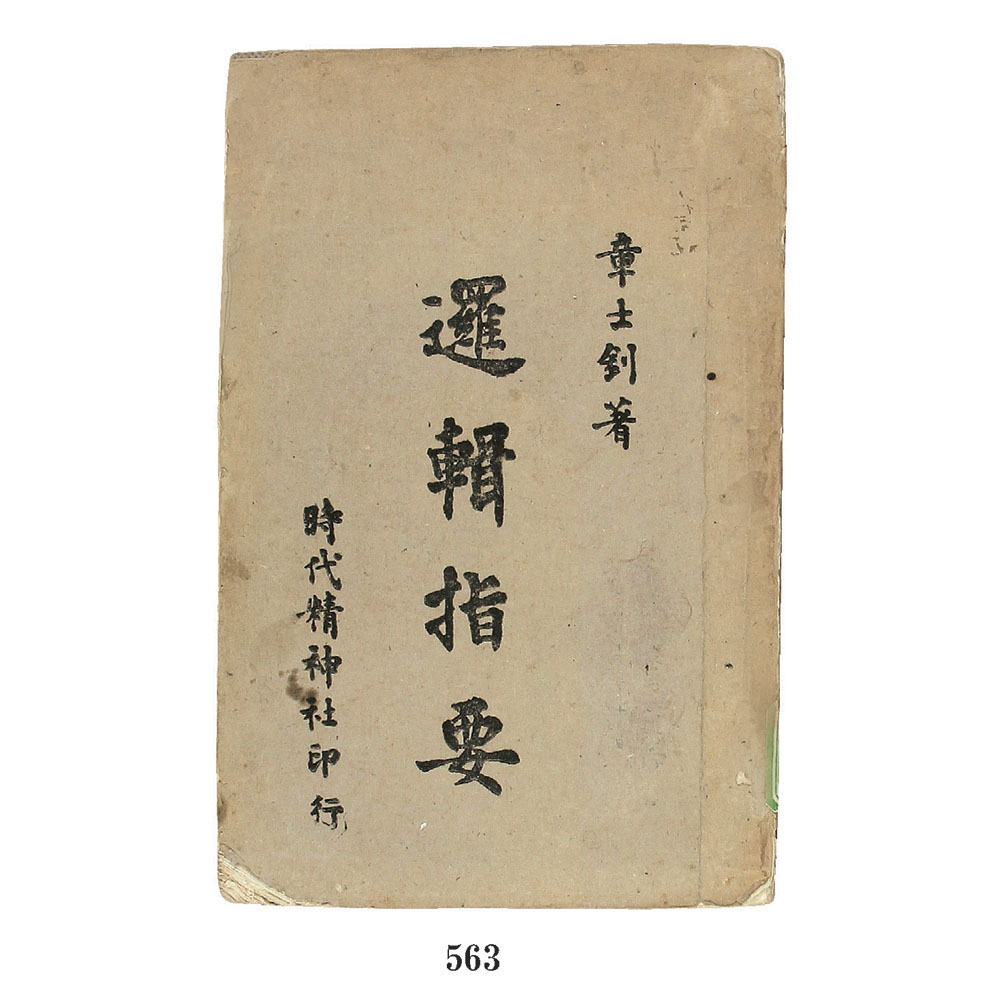 章士釗著
邏輯指要
時代精神社印行
563